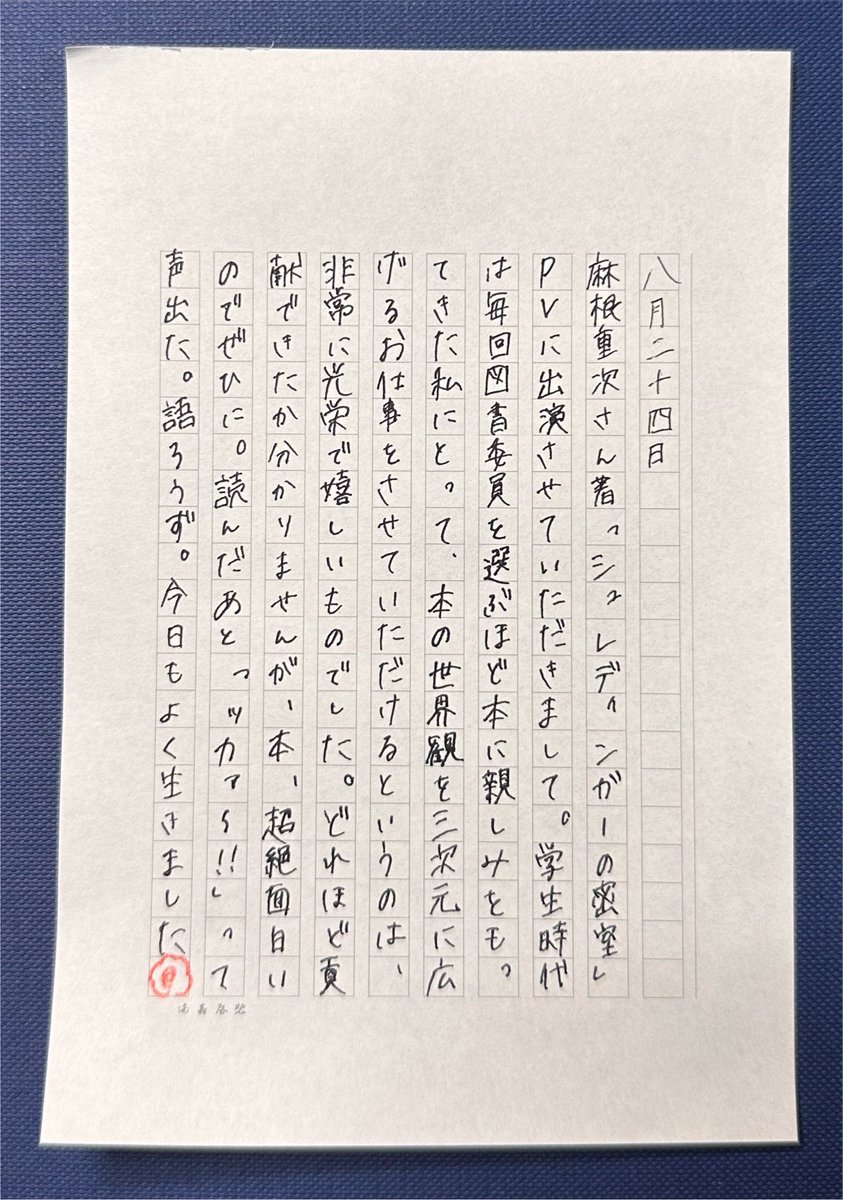 八月二十四日
麻根重次さん著「シュレディンガーの密室」
PVに出演させていただきまして。学生時代
は毎回図書委員を選ぶほど本に親しみをもっ
てきた私にとって、本の世界観を三次元に広
げるお仕事をさせていただけるというのは、
非常に光栄で嬉しいものでした。どれほど貢
献できたか分かりませんが、本、超絶面白い
のでぜひに。読んだあと「ッカァ〜!!」って
声出た。語ろうず。今日もよく生きました